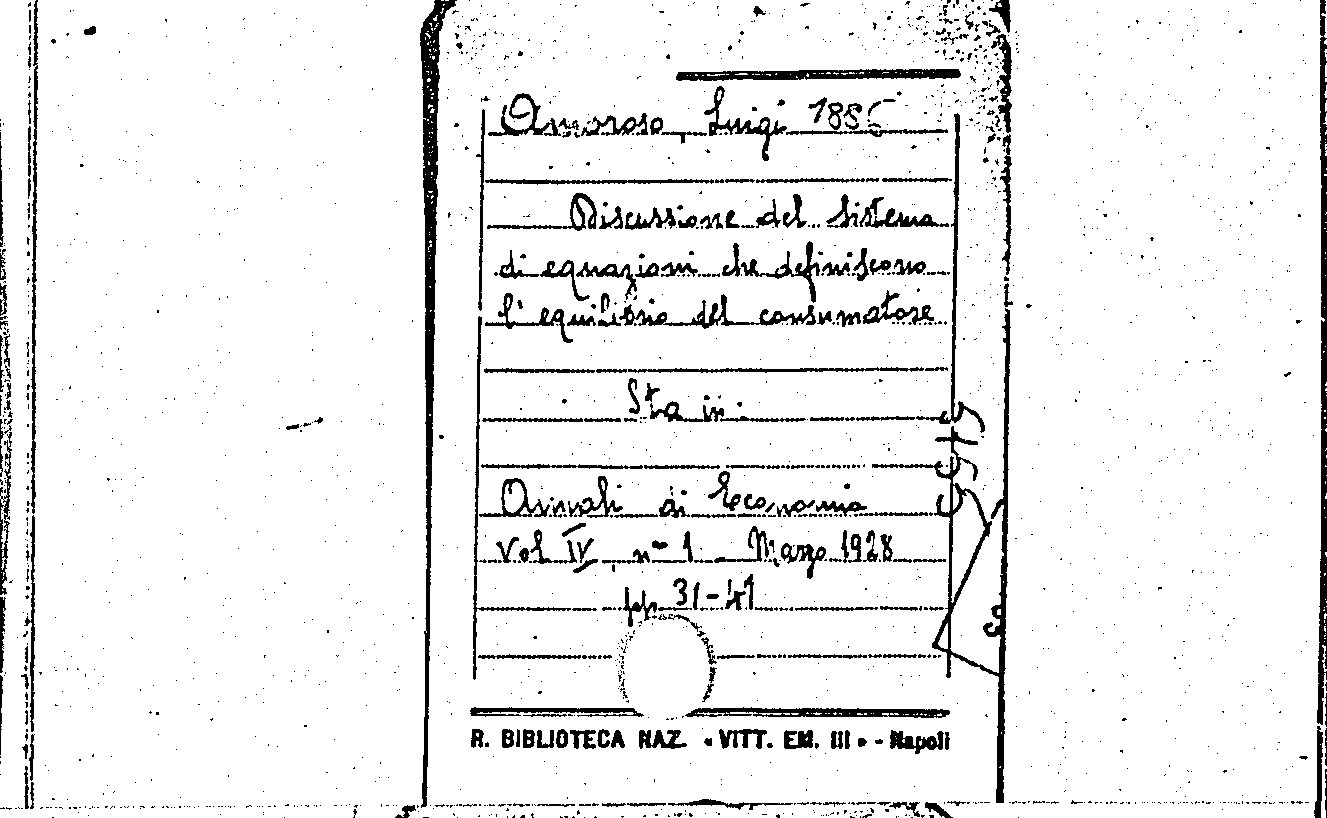 Amoroso, Luigi 1886-
Discussione del sistema
di equazioni che definiscono
l'equilibrio del consumatore
Sta in:
Annali di Economia
Vol IV, nº 1 - Marzo 1928
pp. 31-41
R. BIBLIOTECA NAZ. « VITT. EM. III » - Napoli